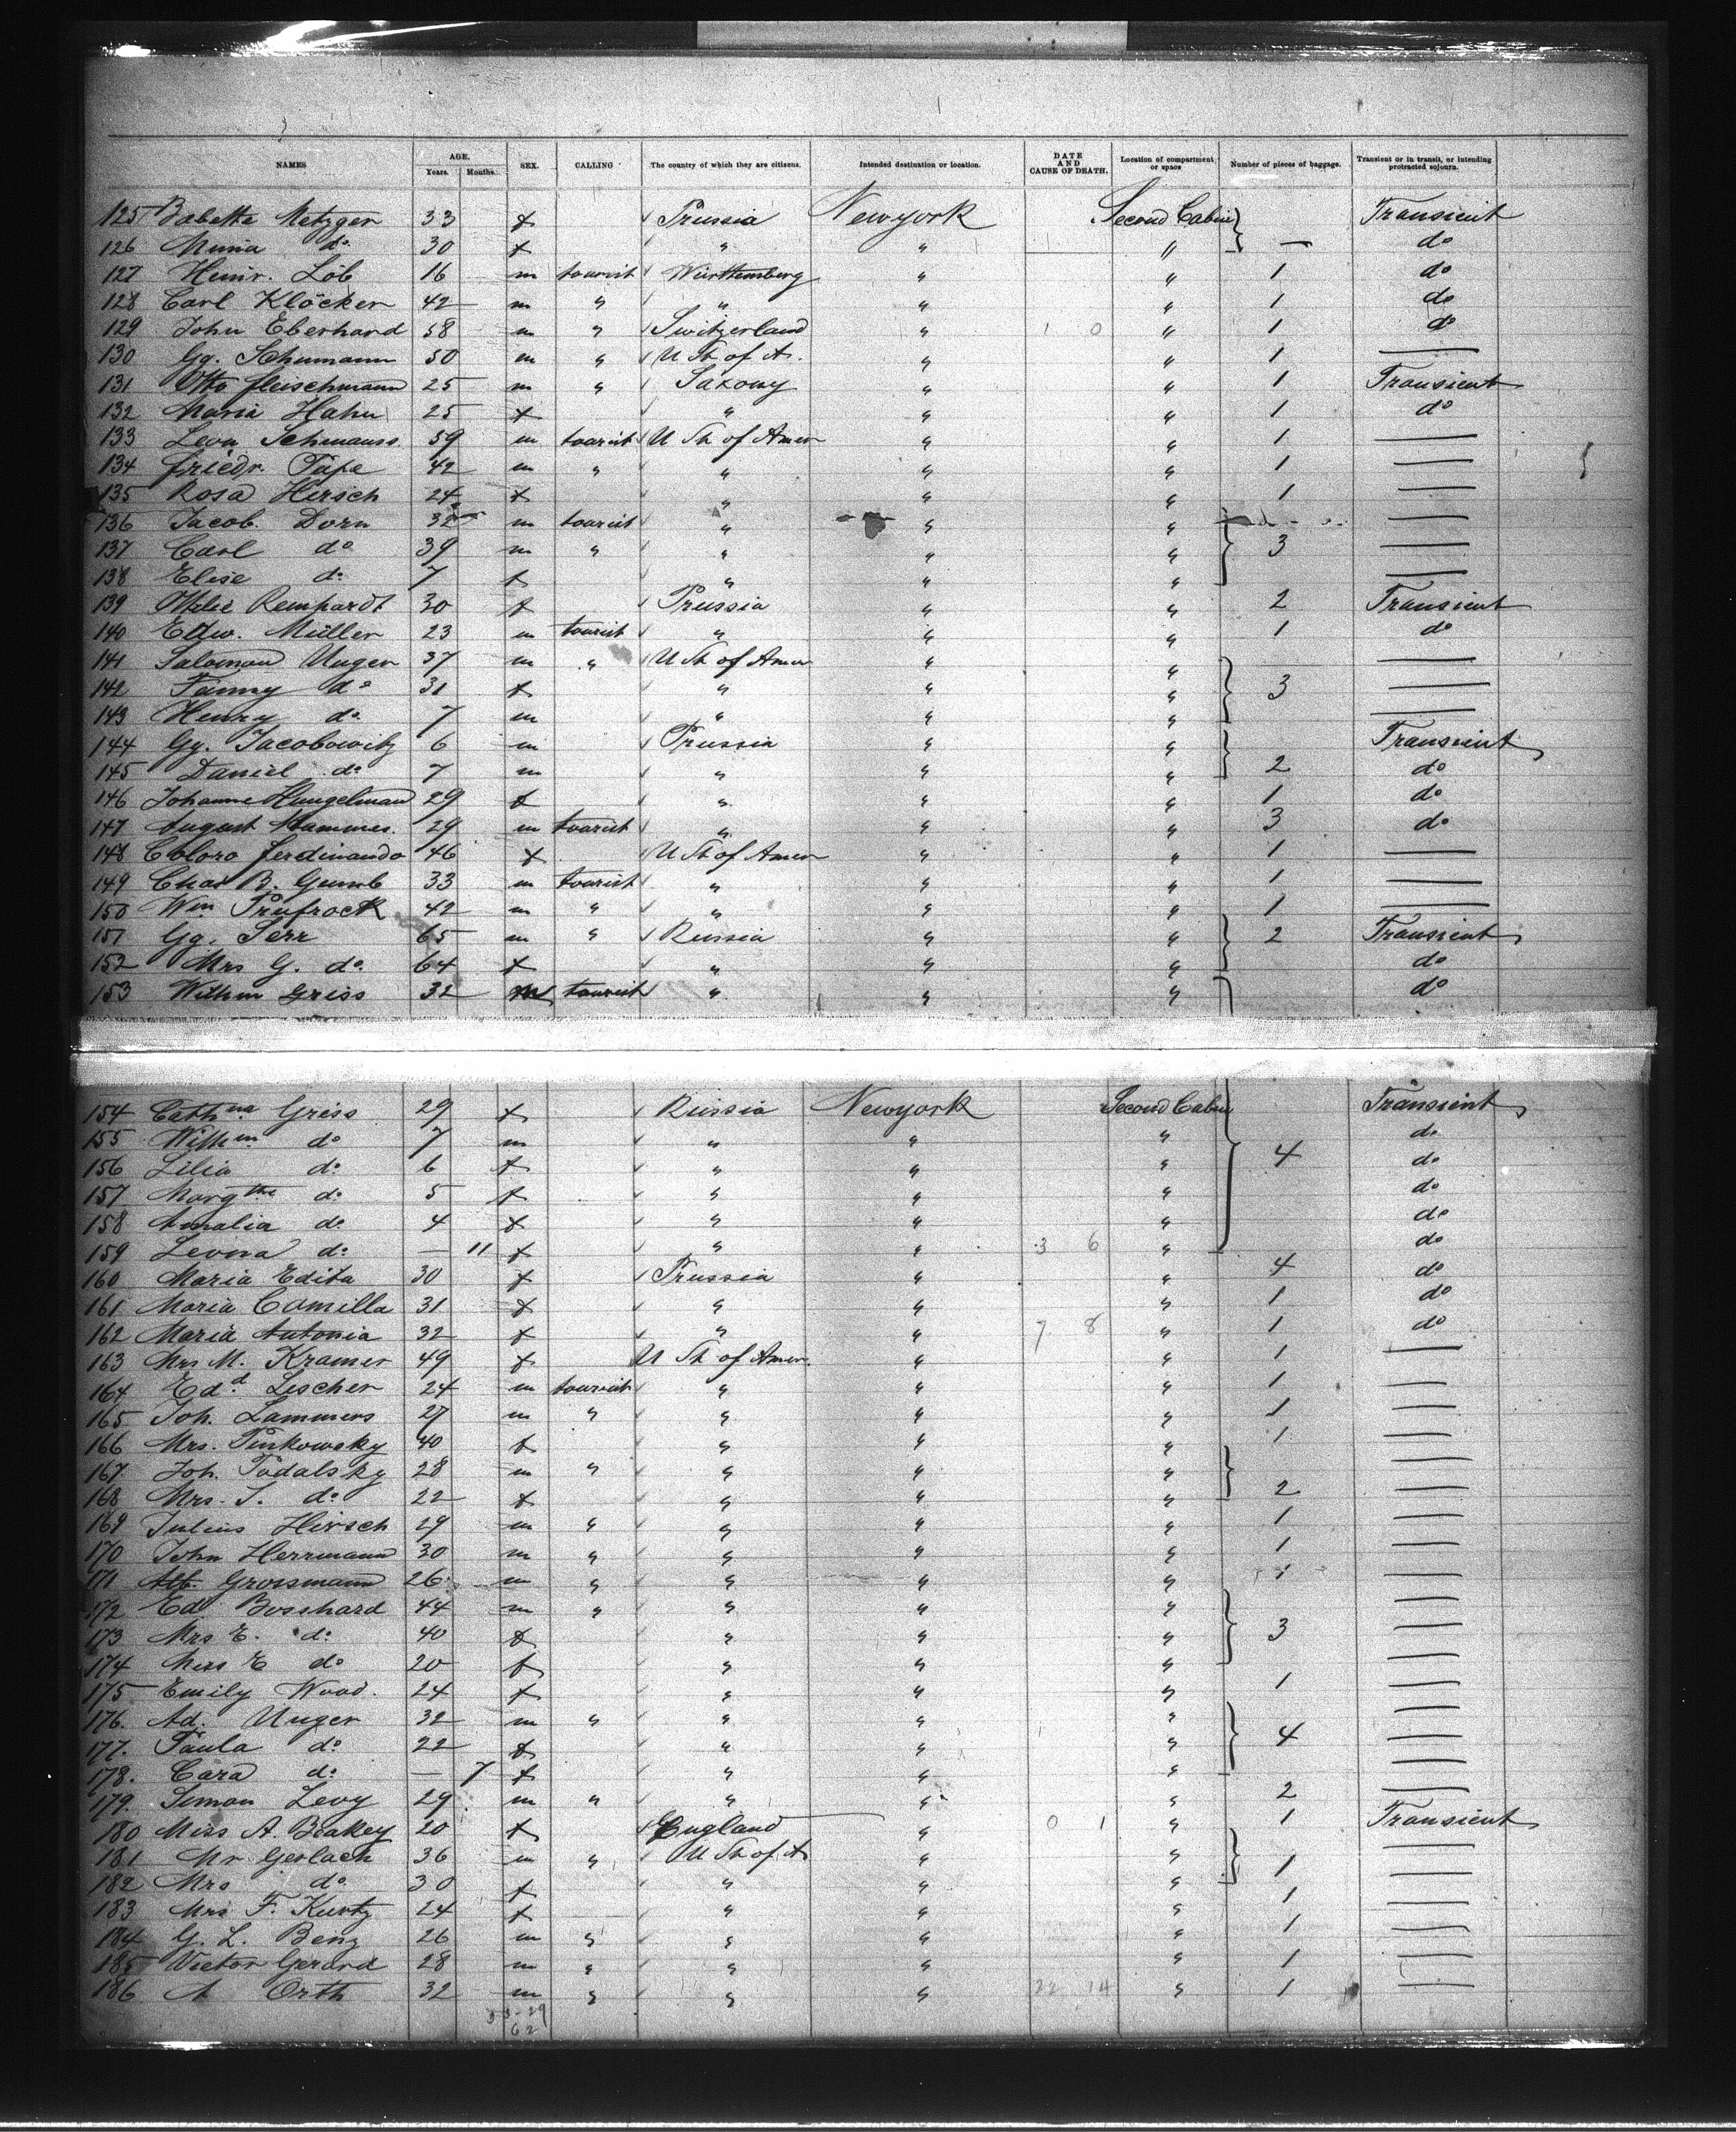 NAMES AGE. Years. Months. SEX. CALLING The country of which they are citizens. Intended destination or location. DATE AND CAUSE OF DEATH. Location of compartment or space Number of pieces of baggage. Transient or in transit, or intending protracted sojourn.
125 Babette Metzger 33 f Prussia Newyork Second Cabin Transient
126 do 30 f " " " — do
127 Heinr. Löb 16 m tourist Württemberg " " 1 do
128 Carl Klöcker 42 m " " " " 1 do
129 John Eberhard 58 m " Switzerland " 1 0 " 1 do
130 Gg. Schumann 50 m " U St of A. " " 1 —
131 Otto Fleischmann 25 m " Saxony " " 1 Transient
132 Maria Hahn 25 f " " " 1 do
133 Leon Schmauss 59 m tourist U St of Amer " " 1 —
134 Friedr. Pape 42 m " " " " 1 —
135 Rosa Hirsch 24 f " " " 1 —
136 Jacob Dorn 32 m tourist " " " —
137 Carl do 39 m " " " " 3 —
138 Elise do 7 f " " " —
139 Reinhardt 30 f Prussia " " 2 Transient
140 Edw. Müller 23 m tourist " " " 1 do
141 Salomon Unger 37 m " U St of Amer " " —
142 Fanny do 31 f " " " 3 —
143 Henry do 7 m " " " —
144 Gg. Jacobowitz 6 m Prussia " " Transient
145 Daniel do 7 m " " " 2 do
146 Johanne Hungelmann 29 f " " " 1 do
147 August Hammes. 29 m tourist " " " 3 do
148 Coloro Ferdinando 46 f U St of Amer " " 1 —
149 Chas B. Gumb 33 m tourist " " " 1 —
150 Wm Prufrock 42 m " " " " 1 —
151 Gg. Serr 65 m " Russia " " 2 Transient
152 Mrs G. do 64 f " " " do
153 Wilhm Griss 32 m tourist " " " do
154 Cathna Griss 29 f Russia Newyork Second Cabin Transient
155 Wilhm do 7 m " " " do
156 Lilia do 6 f " " " 4 do
157 Margthe do 5 f " " " do
158 Amalia do 4 f " " " do
159 Leona do — 11 f " " 3 6 " do
160 Maria Edita 30 f Prussia " " 4 do
161 Maria Camilla 31 f " " " 1 do
162 Maria Antonia 32 f " " 7 8 " 1 do
163 Mrs M. Kramer 49 f U St of Amer. " " 1 —
164 Edd Lischer 24 m tourist " " " 1 —
165 Joh. Lammers 27 m " " " " 1 —
166 Mrs. Pinkowsky 40 f " " " 1 —
167 Joh. Podalsky 28 m " " " " —
168 Mrs. J. do 22 f " " " 2 —
169 Julius Hirsch 29 m " " " " 1 —
170 John Herrmann 30 m " " " " 1 —
171 Alb. Grossmann 26 m " " " " 1 —
172 Ed. Bosshard 44 m " " " " —
173 Mrs E. do 40 f " " " 3 —
174 Miss E do 20 f " " " —
175 Emily Wood. 24 f " " " 1 —
176. Ad. Unger 32 m " " " " —
177. Paula do 22 f " " " 4 —
178. Cara do — 7 f " " " —
179. Simon Levy 29 m " " " " 2 —
180 Miss A. Brakey 20 f England " 0 1 " 1 Transient
181 Mr Gerlach 36 m " U St of A " " 1 —
182 Mrs do 30 f " " " —
183 Mrs F. Kurtz 24 f " " " 1 —
184 G. L. Benz 26 m " " " " 1 —
185 Victor Gerard 28 m " " " " 1 —
186 A Orth 32 m " " " 22 14 " 1 —
33-29
62